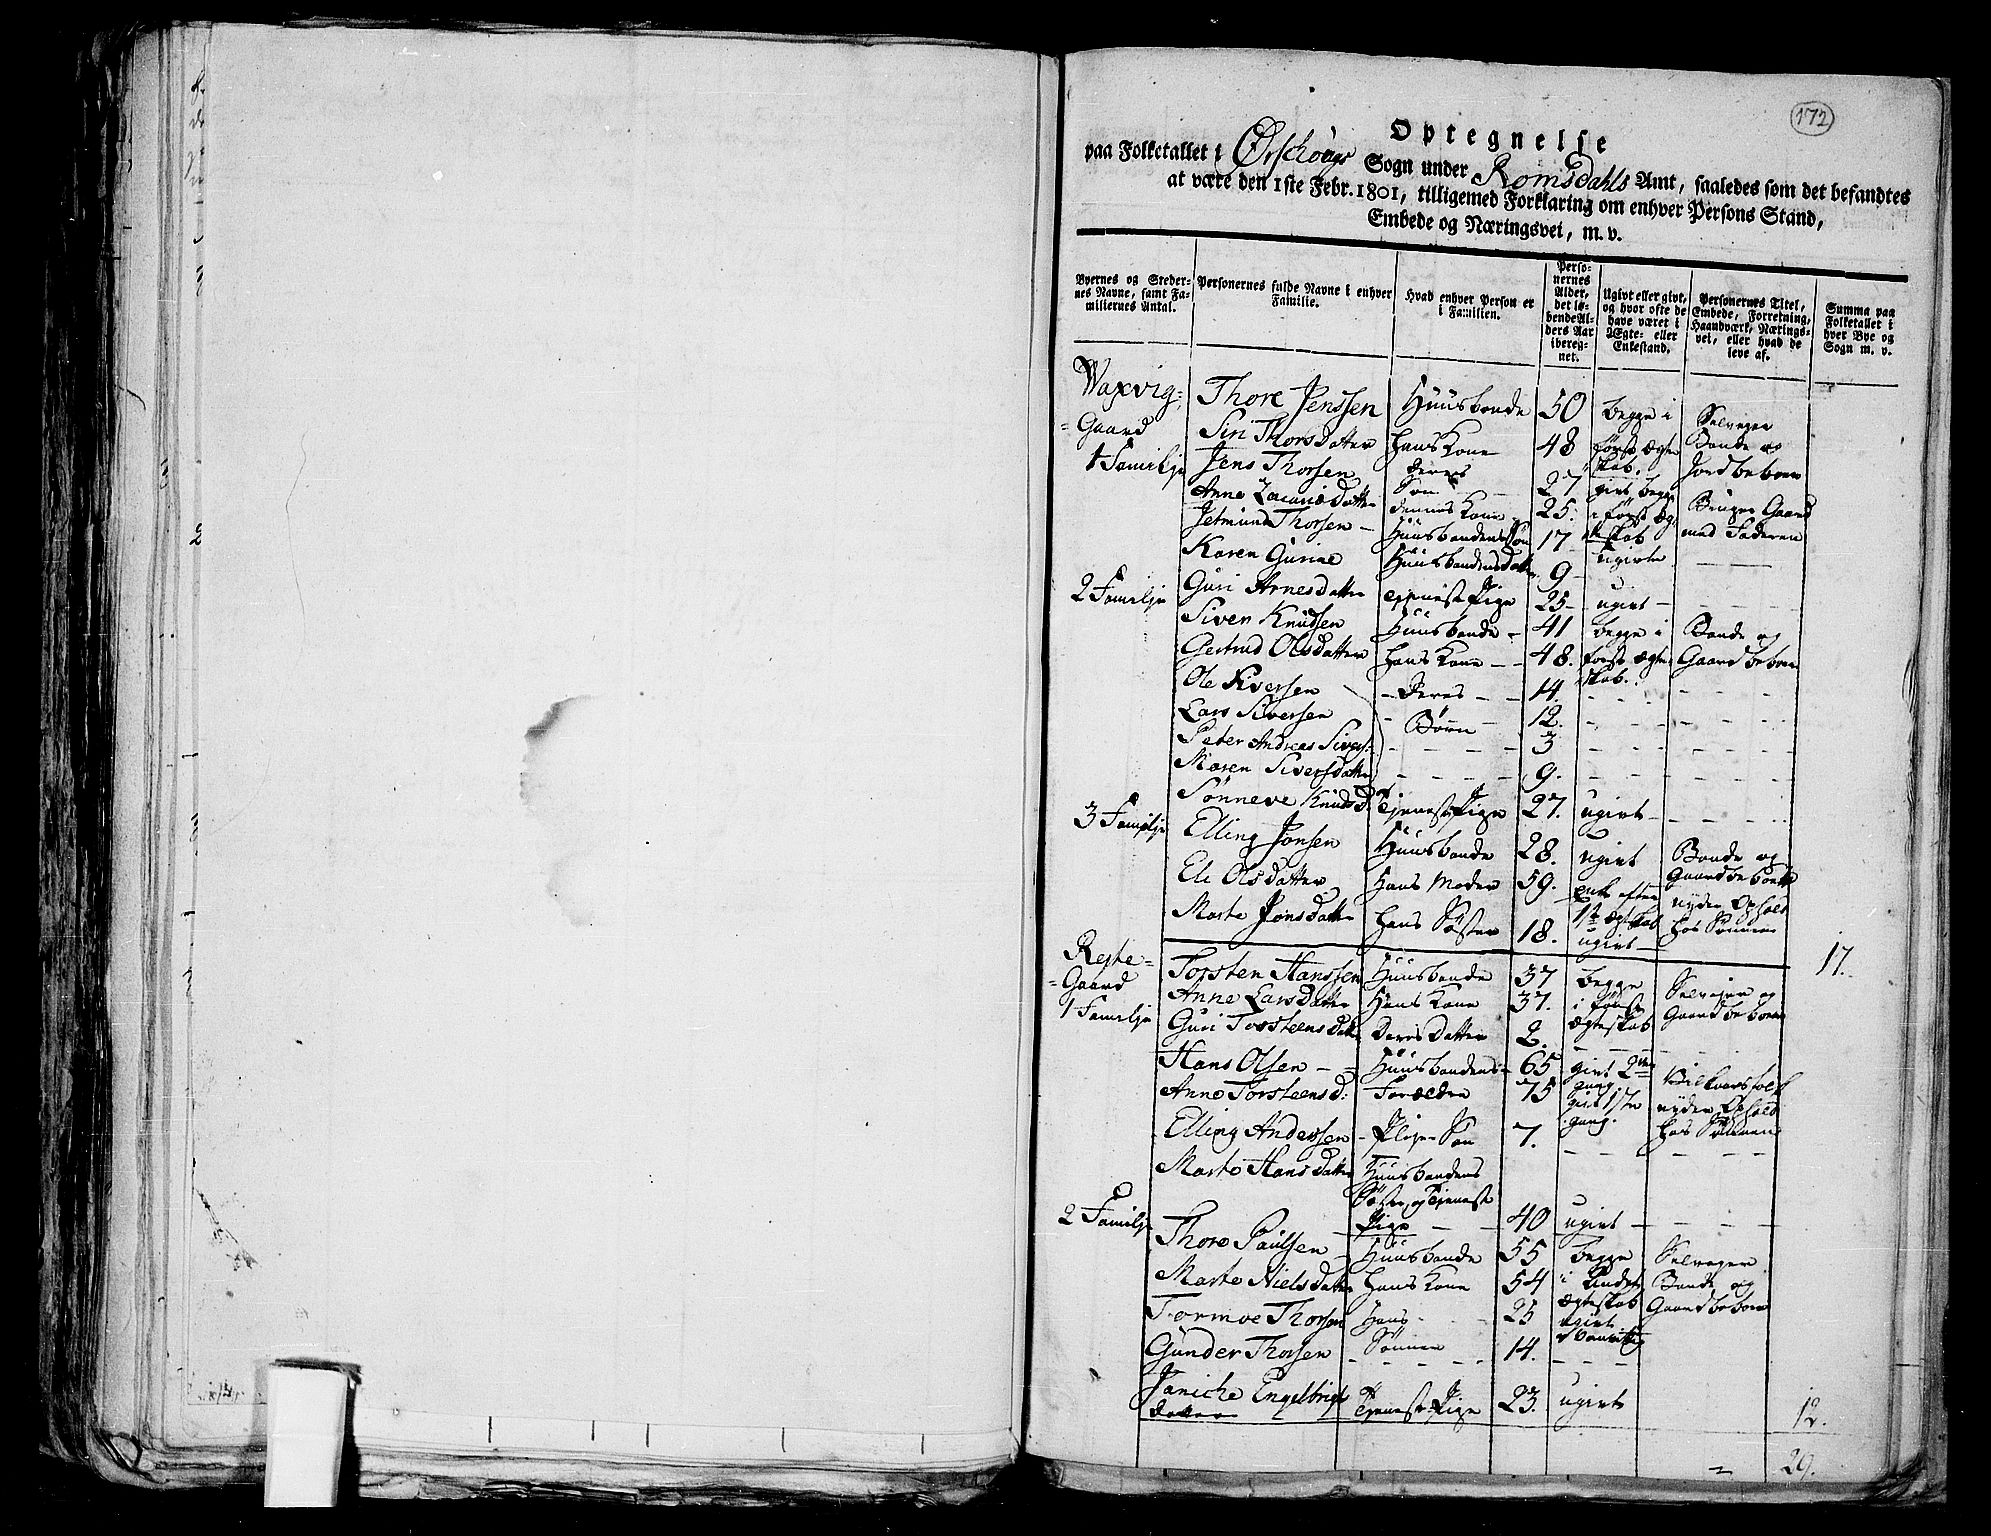 172
Optegnelse
paa Folketallet i Ørschougs Sogn under Romsdahls Amt, saaledes som det befandtes
at være den 1ste Febr. 1801, tilligemed Forklaring om enhver Persons Stand,
Embede og Næringsvei, m. v.
Byernes og Stedernes Navne, samt Familiernes Antal.
Personernes fulde Navne i enhver Familie.
Hvad enhver Person er i Familien.
Personernes Alder, det løbende Alders Aar iberegnet.
Ugivt eller givt, og hvor ofte de have været i Ægte- eller Enkestand.
Personernes Titel, Embede, Forretning, Haandværk, Næringsvei, eller hvad de leve af.
Summa paa Folketallet i hver Bye og Sogn m. v.
Waxvig- Thore Jenssen Huusbonde 50 begge i Selveyer
Gaard Siri Thorsdatter Hans Kone 48 første Ægte Bonde og
1 Familje Jens Thorsen deres Søn 27 skab. Jordbeboer
Anne Zacariædatter dennes Kone 25. givt, begge Bruger Gaard
Jetmund Thorsen Huusbondens Søn 17 i første Ægteskab med Faderen
Karen Gurine Huusbondens Datter 9 ugivte
2 Familje Guri Arnesdatter Tjeneste Pige 25 ugivt
Siver Knudsen Huusbonde 41 begge i Bonde og
Gertrud Olsdatter Hans Kone 48. første Ægte Gaardbeboer
Ole Siversen Deres 14. skab.
Lars Siversen Børn 12.
Peter Andreas Sivers: 3
Maren Siversdatter 9.
Sønneve Knudsd. Tjeneste Pige 27. ugivt
3 Familje Elling Jonsen Huusbonde 28. ugivt Bonde og
Eli Olsdatter Hans Moder 59. Enke efter Gaardbeboer
Marte Jonsdatter Hans Søster 18. 1ste Ægteskab nyder Ophold
ugivt hos Sønnen
17.
Reite- Torsten Hanssen Huusbonde 37 begge Selveier og
Gaard Anne Larsdatter Hans Kone 37. i første Gaardbeboer
1 Familje Guri Torsteensdatter Deres Datter 2. Ægteskab
Hans Olsen Huusbondens 65 givt 2den gang Vilkaarsfolk
Anne Torsteensd: Forældre 75 givt 1ste gang. nyder Ophold
Elling Anderssen Pleje Søn 7. hos Sønnen
Marte Hansdatter Huusbondens
Søster og Tjeneste
Pige 40 ugivt
2 Familje Thore Paulsen Huusbonde 55 begge Selveyer
Marte Nielsdatter Hans Kone 54 i Andet Bonde og
Tormoe Thorsen Hans 25 Ægteskab Gaardbeboer
ugivt
Gunder Thorsen Sønner 14.
Janiche Engelbrigts
datter Tjeneste Pige 23. ugivt
12.
29.